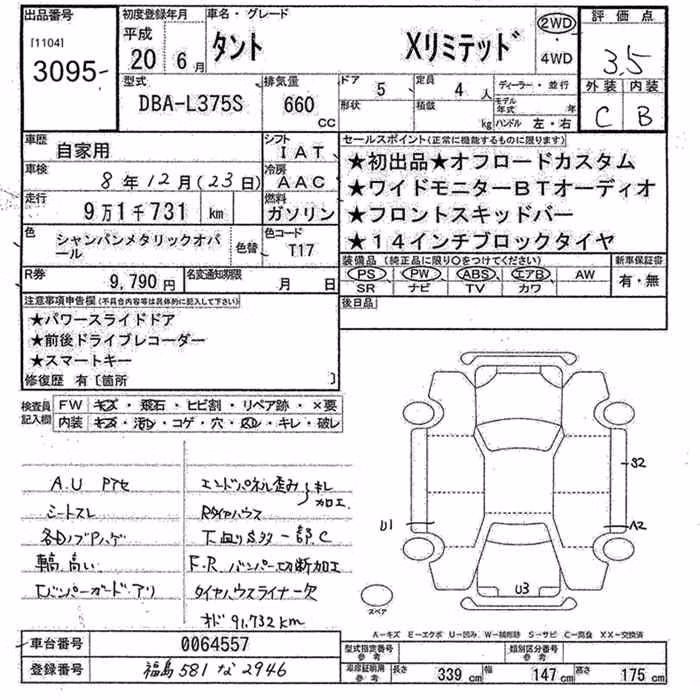 出品番号
[1104]
3095-
初度登録年月
平成
20 6月
車名・グレード
タント Xリミテッド
2WD
4WD
評価点
3.5
外装 内装
C B
型式
DBA-L375S
排気量
660
CC
ドア
5
定員
4 人
形状
積載
kg
ディーラー・並行
モデル年式 年
ハンドル 左・右
車歴
自家用
シフト
IAT
車検
8年12月(23日)
冷房
AAC
走行
9万1千731 km
燃料
ガソリン
色
シャンパンメタリックオパール
色替
色コード
T17
R券
9,790円
名変通知期限
月 日
セールスポイント(正常に機能するものに限ります)
★初出品★オフロードカスタム
★ワイドモニターBTオーディオ
★フロントスキッドバー
★14インチブロックタイヤ
装備品(純正品に限り〇をつけてください)
PS PW ABS エアB AW
SR ナビ TV カワ
新車保証書
有・無
後日品
注意事項申告欄(不具合内容等は具体的に記入して下さい)
★パワースライドドア
★前後ドライブレコーダー
★スマートキー
修復歴 有〔箇所 〕
検査員記入欄
FW キズ・飛石・ヒビ割・リペア跡・×要
内装 キズ・汚れ・コゲ・穴・スレ・キレ・破レ
A.U Pアセ
シートスレ
各Dノブアハゲ
車高高い
エンドパネル歪み キレ
加工
Rタイヤハウス
下廻りサタ一部C
F.R.バンパー切断加工
タイヤハウスライナー欠
オド91,732km
U1
S2
A2
U3
スペア
A-キズ E-エクボ U-凹み W-補修跡 S-サビ C-腐食 XX-交換済
車台番号
0064557
登録番号
福島581な2946
型式指定番号
参考
類別区分番号
参考
車庫証明用
参考
長さ 339cm 幅 147cm 高さ 175cm